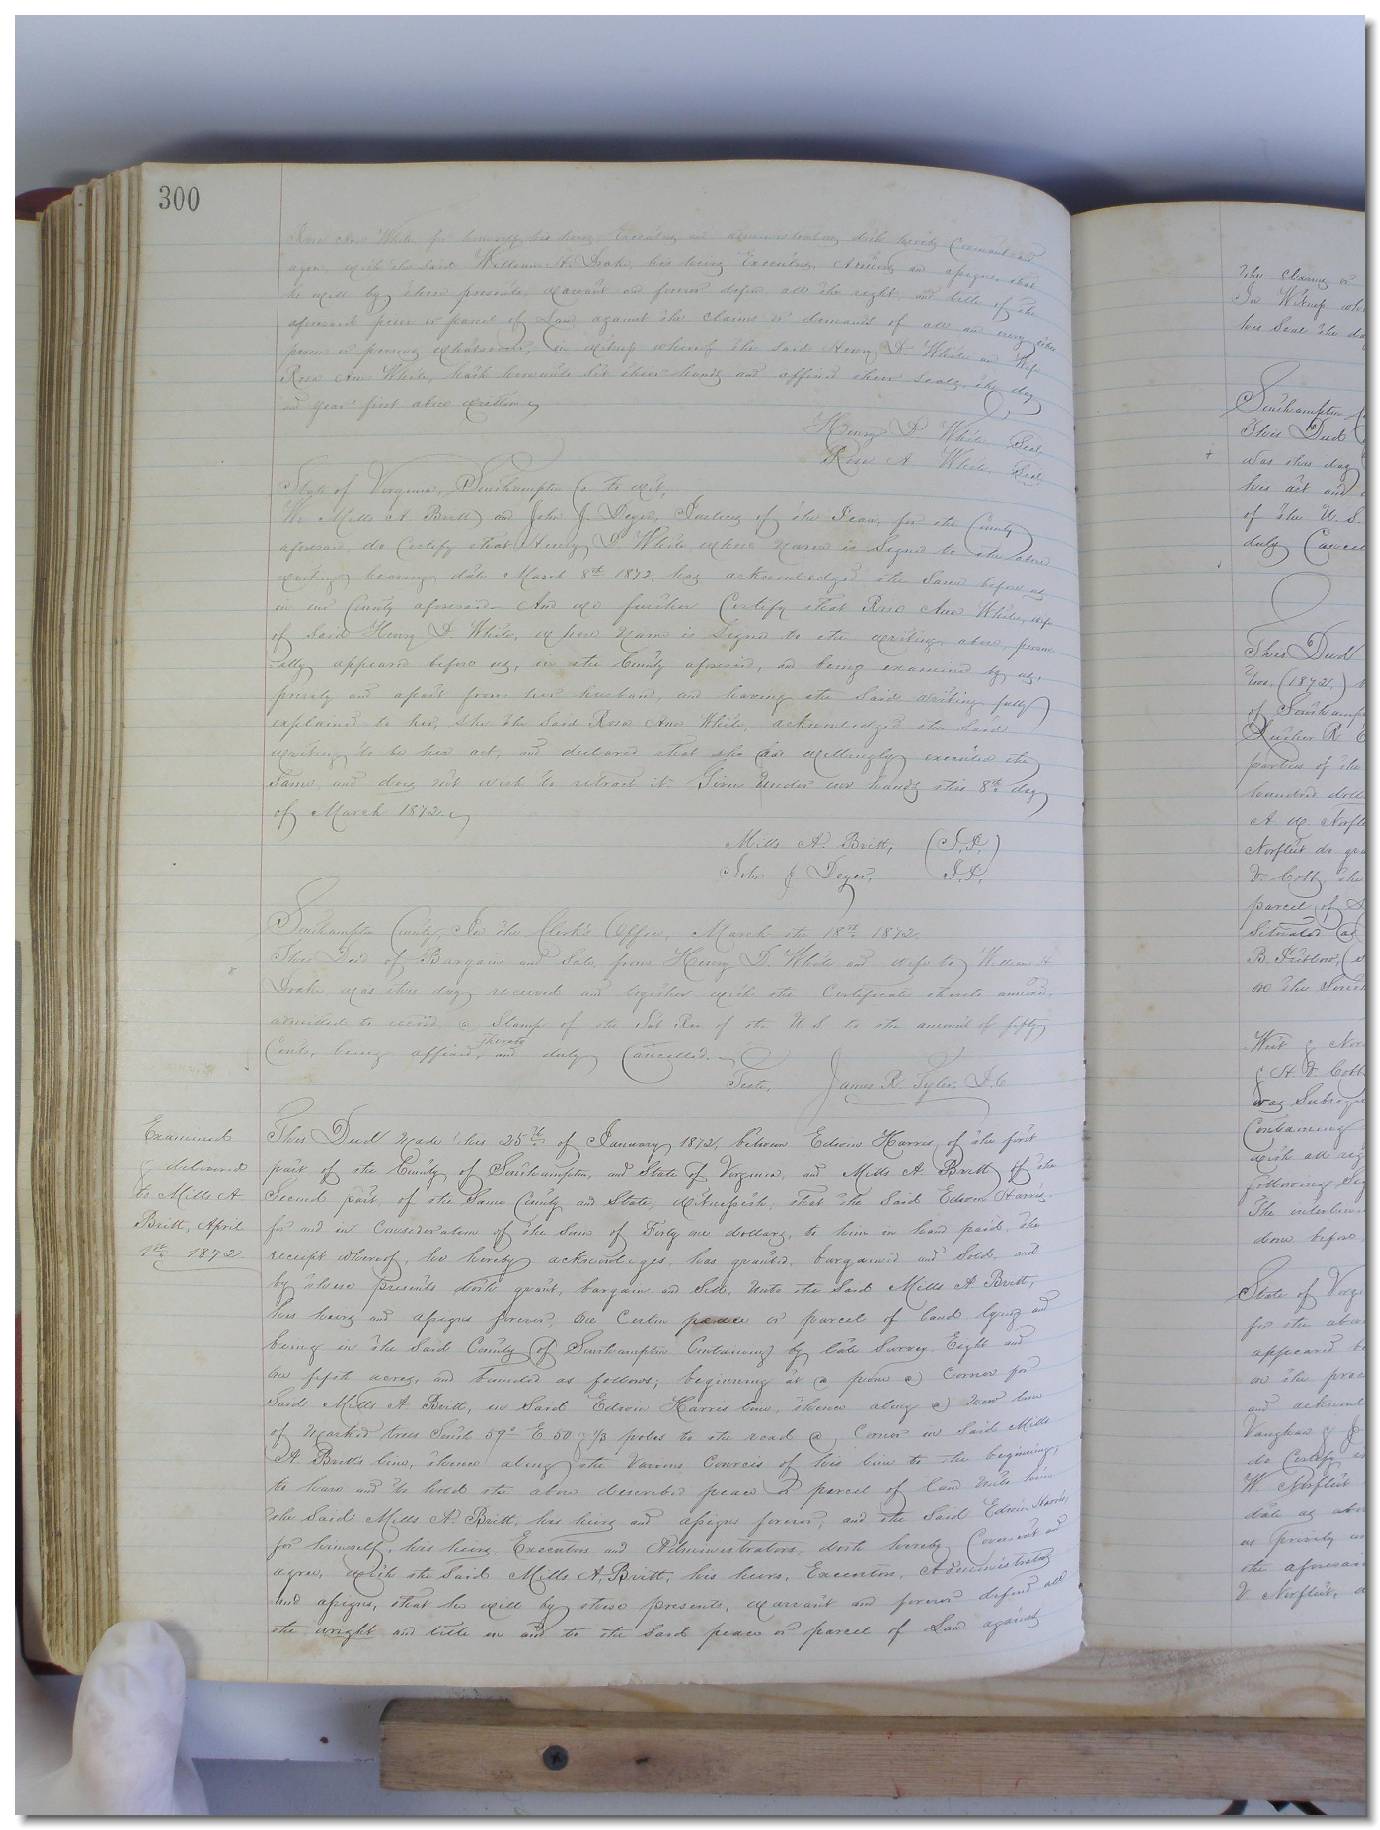 300
Rose Ann White, for himself, his heirs, Executors and administrators doth hereby Covenant and
agree, with the said William H. Drake, his heirs Executors, Admors and assigns, that
he will by these presents, warrant and forever defend all the right, and title of the
aforesaid peice or parcel of Land against the claims or demands of all and every other
person or persons whatsoever, in witness whereof the said Henry D. White and Wife
Rose Ann White, hath hereunto set their hands and affixed their seals, the day
and year first above written
Henry D. White Seal
Rose A. White, Seal
State of Virginia, Southampton Co. to wit,
We Mills A. Britt and John J. Deyer, Justices of the Peace, for the County
aforesaid, do Certify that Henry D. White, whose name is Signed to the above
writing bearing date March 8th 1872, has acknowledged the Same before us
in our County aforesaid. And we further Certify that Rose Ann White, wife
of Said Henry D. White, whose name is Signed to the writing above, person
ally appeared before us, in the County aforesaid, and being examined by us,
privily and apart from her husband, and having the Said writing fully
explained to her, she the Said Rose Ann White, acknowledged the Said
writing to be her act, and declared that she had willingly executed the
Same and does not wish to retract it. Given under our hands this 8th day
of March 1872.
Mills A. Britt, (J.P.)
John J Deyer, J.P.
Southampton County, In the Clerk's Office, March the 18th 1872
This Deed of Bargain and Sale, from Henry D. White and wife to William H
Drake was this day received and together with the Certificate thereto annexed,
admitted to record a Stamp of the Int Rev of the U.S. to the amount of fifty
Cents, being affixed, thereto and duly Cancelled.
Teste, James R. Tyler, D.C
Examined
& delivered
to Mills A
Britt, April
1st 1872
This Deed Made this 25th of January 1872, between Edwin Harris, of the first
part of the County of Southampton, and State of Virginia, and Mills A. Britt of the
Second part, of the Same County and State, Witnesseth, that the Said Edwin Harris,
for and in Consideration of the Sum of Forty one dollars, to him in hand paid, the
receipt whereof, he hereby acknowledges, has granted, bargained and Sold, and
by these presents doth grant, bargain and Sell, unto the Said Mills A. Britt,
his heirs and assigns forever, one Certin peace or parcel of land lying and
being in the Said County of Southampton Containing by late Survey Eight and
one fifth acres, and bounded as follows; beginning at a pine a Corner for
Said Mills A. Britt, in Said Edwin Harris line, thence along a new line
of marked trees South 59° E 50 & 1/3 poles to the road a Corner in Said Mills
A. Britts line, thence along the Various Courses of his line to the beginning,
to have and to hold the above described peace or parcel of land unto him
the Said Mills A. Britt, his heirs and assigns forever, and the Said Edwin Harris,
for himself, his heirs, Executors and Administrators, doth hereby Covenant and
agree, with the Said Mills A. Britt, his heirs, Executors, Administrators
and assigns, that he will by these presents, warrant and forever defend all
the wright and title in and to the Said peace or parcel of Land against
In Witness
his Seal the
Southampton
This Deed
was this day
his act and
of the U.S.
duly
This Deed
(1872)
of
parties of the
hundred
Norfleet
V. Cobb, the
parcel of
Situated
in the
was
Containing
with all
following
The
done before
State of
for the
appeared
in the
and
Vaughan & J
do Certify
W. Norfleet
date as
the
V. Norfleet,